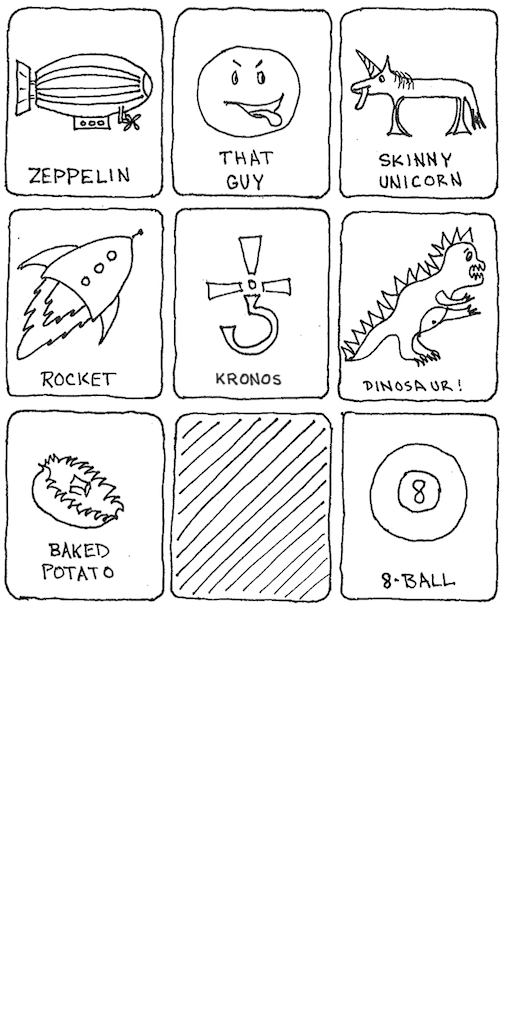 ZEPPELIN
THAT
GUY
SKINNY
UNICORN
ROCKET
KRONOS
DINOSAUR!
BAKED
POTATO
8
8-BALL